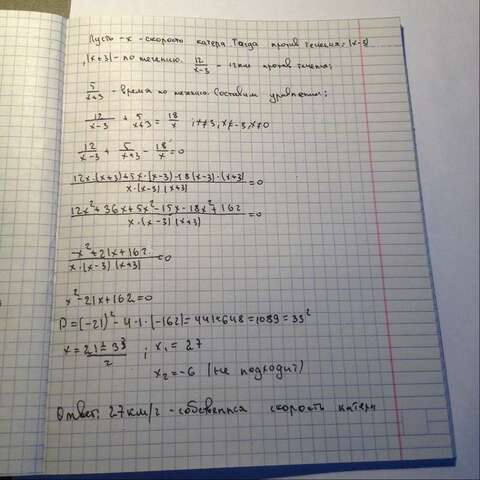 Пусть - х - скорость катера Тогда против течения: (х-3)
, (х+3) - по течению. 12/(х-3) - 12км против течения;
5/(х+3) - время по течению. Составим уравнение:
12/(х-3) + 5/(х+3) = 18/х ; х≠3, х≠-3, х≠0
12/(х-3) + 5/(х+3) - 18/х = 0
(12х·(х+3)+5х·(х-3)-18(х-3)·(х+3))/(х·(х-3)(х+3)) = 0
(12х²+36х+5х²-15х-18х²+162)/(х·(х-3)(х+3)) = 0
(-х²+21х+162)/(х·(х-3)(х+3)) = 0
х²-21х+162=0
D=(-21)²-4·1·(-162)=441+648=1089=33²
х=(21±33)/2 ; х₁=27
х₂=-6 (не подходит)
Ответ: 27км/г - собственная скорость катера